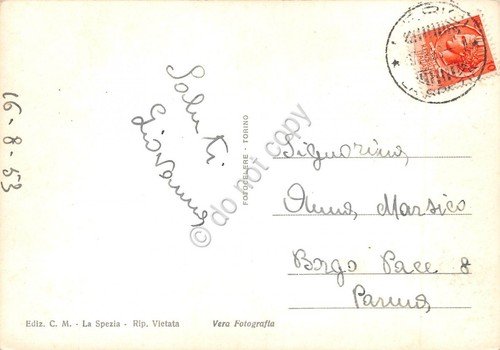 16-8-53
Saluti
Giovanna
FOTOCELERE - TORINO
Signorina
Anna Marsico
Borgo Pace 8
Parma
Ediz. C. M. - La Spezia - Rip. Vietata
Vera Fotografia
© do not copy